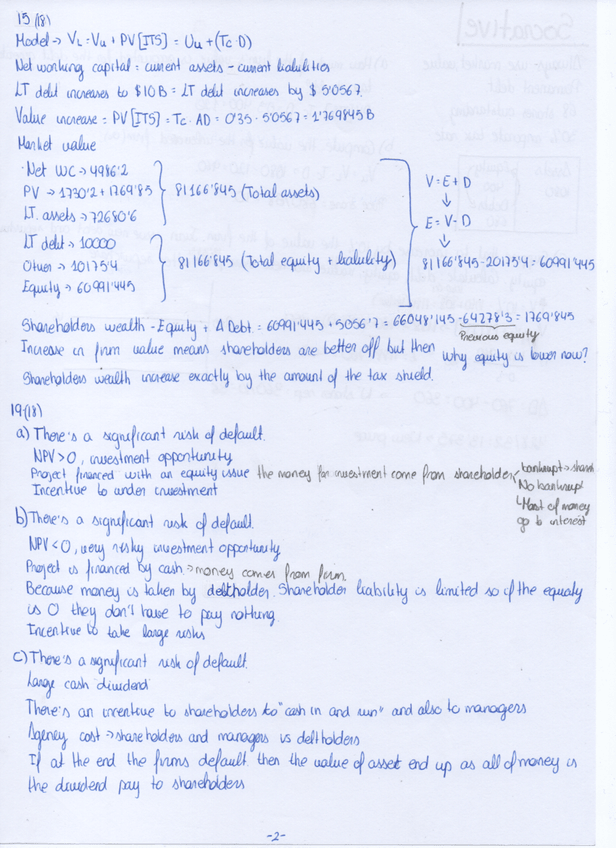 15 (18)
Model → VL = Vu + PV[ITS] = Uu + (Tc · D)
Net working capital = current assets - current liabilities
LT debt increases to $10B = LT debt increases by $ 5'0567
Value increase = PV[ITS] = Tc · AD = 0'35 · 5'0567 = 1'769845 B
Market value
· Net WC → 4986'2
PV → 1730'2 + 1769'85
LT. assets → 72680'6
81166'845 (Total assets)
LT debt → 10000
Other → 10175'4
Equity → 60991'445
81166'845 (Total equity + liability)
V = E + D
↓
E = V - D
↓
81166'845 - 20175'4 = 60991'445
Shareholders wealth - Equity + Δ Debt = 60991'445 + 5056'7 = 66048'145 - 64278'3 = 1769'845
Previous equity
Increase in firm value means shareholders are better off but then why equity is lower now?
Shareholders wealth increase exactly by the amount of the tax shield.
19 (18)
a) There's a significant risk of default.
NPV > 0, investment opportunity
Project financed with an equity issue the money for investment come from shareholder
bankrupt →
No bankrupt
↳ Most of money
go to interest
Incentive to under investment
b) There's a significant risk of default.
NPV < 0, very risky investment opportunity
Project is financed by cash → money comes from firm
Because money is taken by debtholder. Shareholder liability is limited so if the equaty
is 0 they don't have to pay nothing.
Incentive to take large risks
c) There's a significant risk of default.
Large cash dividend
There's an incentive to shareholders to "cash in and run" and also to managers
Agency cost → shareholders and managers vs debtholders
If at the end the firms default then the value of asset end up as all of money is
the dividend pay to shareholders
-2-